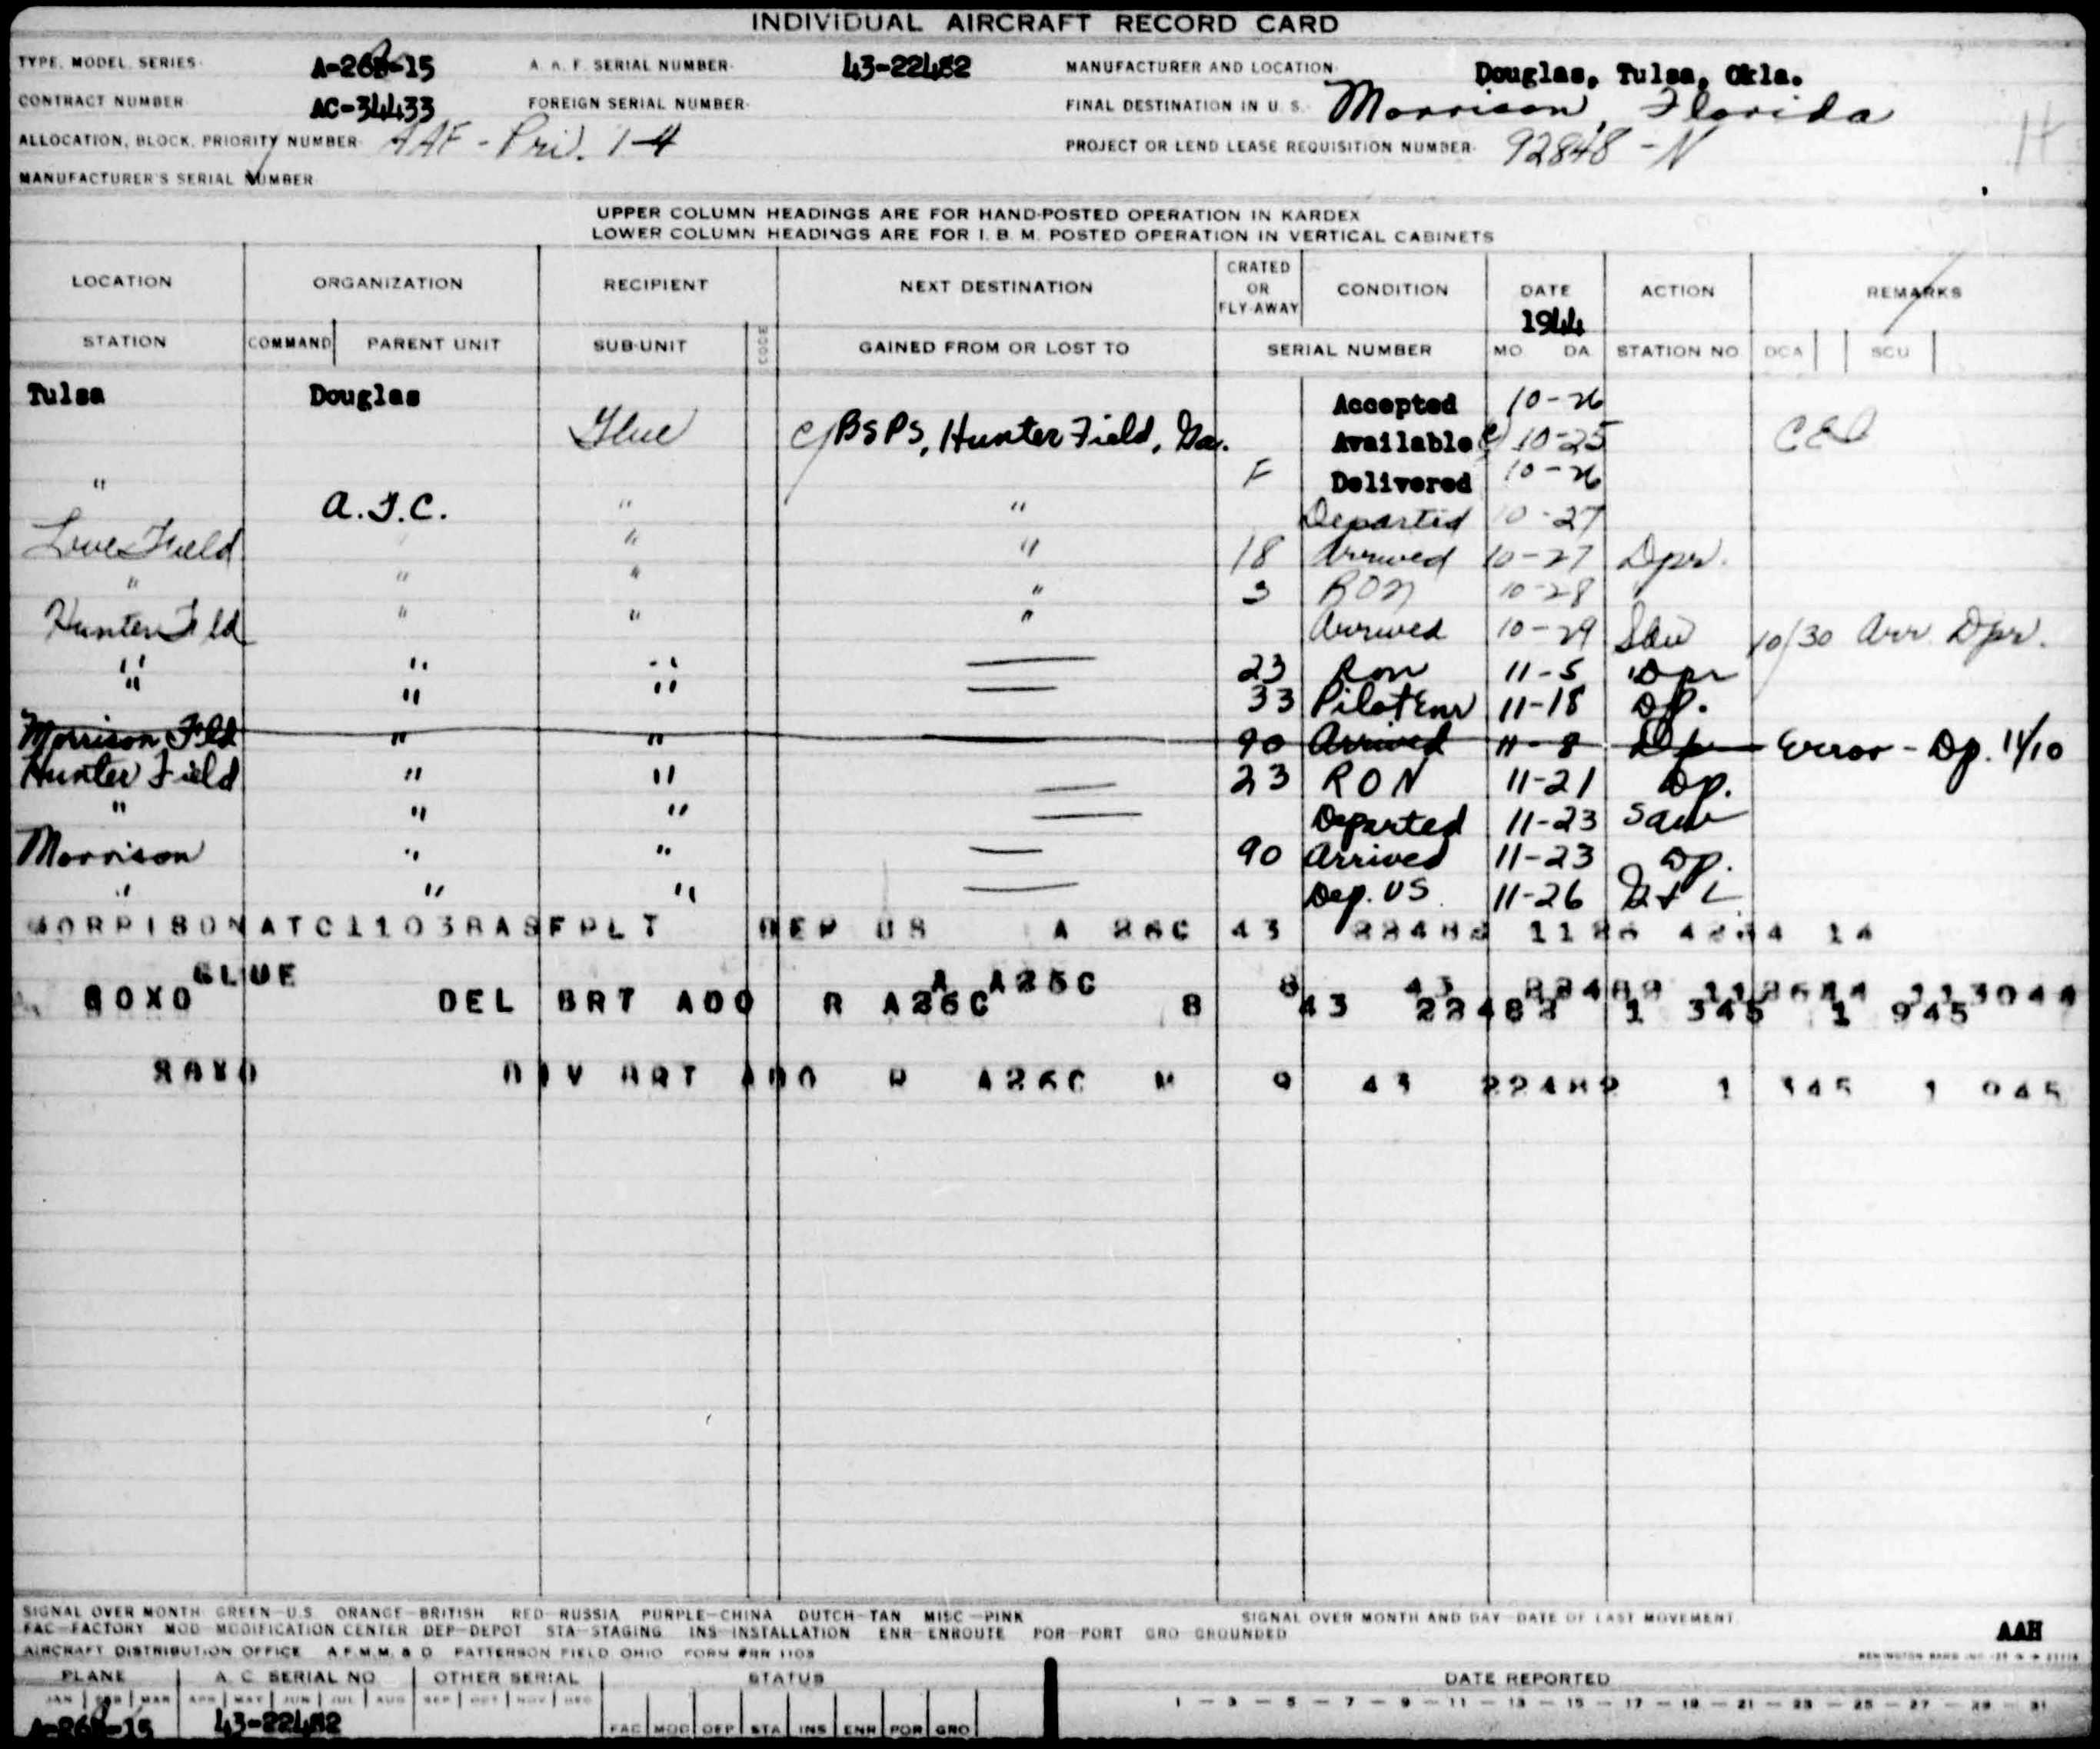 INDIVIDUAL AIRCRAFT RECORD CARD
TYPE, MODEL, SERIES A-26B-15 A. A. F. SERIAL NUMBER 43-22482 MANUFACTURER AND LOCATION Douglas, Tulsa, Okla.
CONTRACT NUMBER AC-34433 FOREIGN SERIAL NUMBER FINAL DESTINATION IN U. S. Morrison, Florida
ALLOCATION, BLOCK, PRIORITY NUMBER AAF - Pri. 1-4 PROJECT OR LEND LEASE REQUISITION NUMBER 92848-N
MANUFACTURER'S SERIAL NUMBER
UPPER COLUMN HEADINGS ARE FOR HAND-POSTED OPERATION IN KARDEX
LOWER COLUMN HEADINGS ARE FOR I. B. M. POSTED OPERATION IN VERTICAL CABINETS
LOCATION ORGANIZATION RECIPIENT NEXT DESTINATION CRATED OR FLY-AWAY CONDITION DATE 1944 ACTION REMARKS
STATION COMMAND PARENT UNIT SUB-UNIT CODE GAINED FROM OR LOST TO SERIAL NUMBER MO. DA. STATION NO DCA SCU
Tulsa Douglas Accepted 10-26
Glue BSPS, Hunter Field, Ga. Available 10-25
" F Delivered 10-26
A.T.C. " " Departed 10-27
Love Field " " 18 Arrived 10-27 Dpr.
" " " " 3 RON 10-28
Hunter Fld " " " Arrived 10-29 Sav 10/30 Arr. Dpr.
" " " 23 Ron 11-5 Dpr
" " " 33 Pilot Enr 11-18 Dp.
Morrison Fld " " 90 Arrived 11-8 Dp Error - Dp. 11/10
Hunter Field " " 23 RON 11-21 Dp.
" " " Departed 11-23 Sav
Morrison " " 90 Arrived 11-23 Dp.
" " " Dep. US 11-26
MORRISON ATC 1103BASFPLT DEP US A 26C 43 22482 1126 4264 14
GLUE A A26C 8 43 22482 112644 113044
SOXO DEL BRT ADO R A26C 8 43 22482 1 345 1 945
SOXO DIV BRT ADO R A26C M 9 43 22482 1 345 1 945
SIGNAL OVER MONTH GREEN-U.S. ORANGE-BRITISH RED-RUSSIA PURPLE-CHINA DUTCH-TAN MISC-PINK SIGNAL OVER MONTH AND DAY-DATE OF LAST MOVEMENT
FAC-FACTORY MOD MODIFICATION CENTER DEP-DEPOT STA-STAGING INS-INSTALLATION ENR-ENROUTE POR-PORT GRO GROUNDED AAH
AIRCRAFT DISTRIBUTION OFFICE A.F.M.M. & D. PATTERSON FIELD OHIO FORM #RR 1103
PLANE A. C. SERIAL NO. OTHER SERIAL STATUS DATE REPORTED
JAN FEB MAR APR MAY JUN JUL AUG SEP OCT NOV DEC 1 - 3 - 5 - 7 - 9 - 11 - 13 - 15 - 17 - 19 - 21 - 23 - 25 - 27 - 29 - 31
A-26B-15 43-22482 FAC MOD DEP STA INS ENR POR GRO